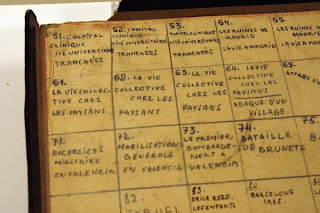 51. L'HOPITAL
CLINIQUE
CITÉ UNIVERSITAIRE
TRANCHÉES
52. L'HOPITAL
CLINIQUE
CITÉ UNIVERSITAIRE
TRANCHÉES
53.
CLINIQUE
CITÉ UNIVERSITAIRE
TRANCHÉES
54.
LES RUINES DE
MADRID
LA VIE A MADRID
55.
LES RUINES
MADRID
LA VIE A MAD
61.
LA VIE COLLEC-
TIVE CHEZ
LES PAYSANS
62. LA VIE
COLLECTIVE
CHEZ LES
PAYSANS
63. LA VIE
COLLECTIVE
CHEZ LES
PAYSANS
64. LA VIE
COLLECTIVE
CHEZ LES
PAYSANS
ATAQUE D'UN
VILLAGE
65.
ATAQUE D'
71.
EXCERCICES
MILITAIRE
EN VALENCIA
72.
MOBILISATIONS
GÉNÉRALE
EN VALENCIA
73.
LE PREMIER
BOMBARDE-
MENT A
VALENCIA
74.
BATAILLE
DE BRUNETE
82.
TERUEL
83.
ERICA REED,
LES ENFANTS
84.
BARCELONE